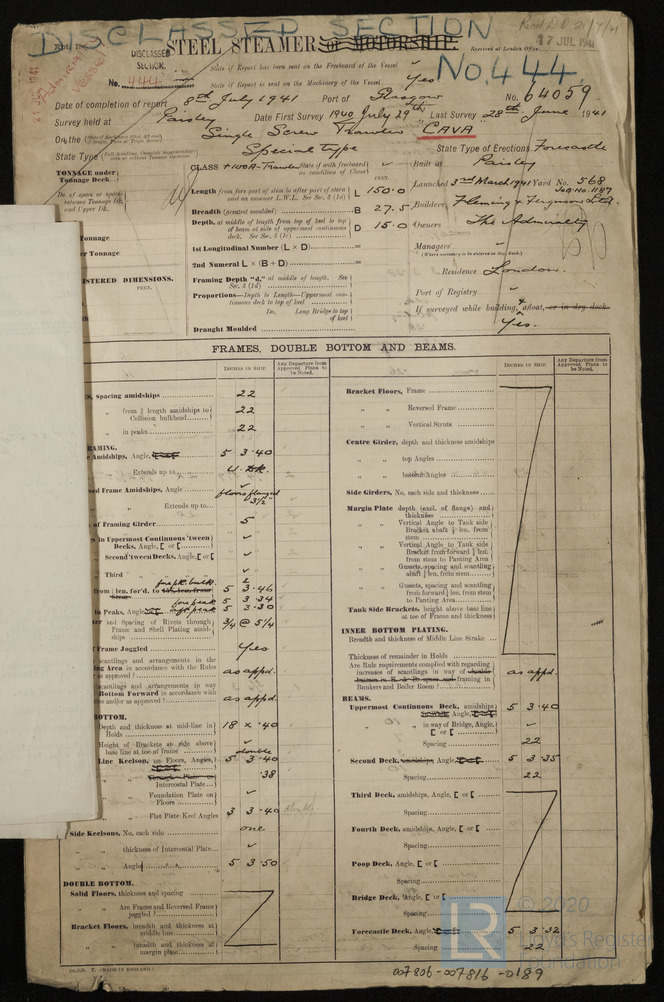 DISCLASSED SECTION
STEEL STEAMER or MOTORSHIP.
Received at London Office
17 JUL 1941
DISCLASSED
SECTION.
No. 444
State if Report has been sent on the Freeboard of the Vessel
State if Report is sent on the Machinery of the Vessel Yes
No. 444
Date of completion of report 8th July 1941 Port of Glasgow No. 64059
Survey held at Paisley Date First Survey 1940 July 29th Last Survey 28th June 1941
On the Single Screw Trawler "CAVA"
State Type Special type State Type of Erections Forecastle
TONNAGE under
Tonnage Deck
CLASS +100A-Trawler State if with freeboard
as condition of Class
Built at Paisley
FEET.
Launched 3rd March 1941 Yard No. 568
Job No. 1187
Length from fore part of stem to after part of stern
post on summer L.W.L. See Sec. 3 (1a) L 150.0
Breadth (greatest moulded) B 27.5
Depth, at middle of length from top of keel to top
of beam at side of uppermost continuous
deck. See Sec. 3 (1c) D 15.0
Builders Fleming & Ferguson Ltd.
Owners The Admiralty
1st Longitudinal Number (L × D) =
2nd Numeral L × (B + D) =
Managers
(Where necessary to be entered in Reg. Book.)
Residence London.
Tonnage
er Tonnage
ISTERED DIMENSIONS.
FEET.
Framing Depth "d," at middle of length. See
Sec. 3 (1d)
Proportions—Depth to Length—Uppermost con-
tinuous deck to top of keel
Do. Long Bridge to top
of keel
Draught Moulded
Port of Registry
If surveyed while building, & afloat, or in dry dock
Yes.
FRAMES, DOUBLE BOTTOM AND BEAMS.
INCHES IN SHIP.
Any Departure from
Approved Plans to
be Noted.
INCHES IN SHIP.
Any Departure from
Approved Plans to
be Noted.
s, Spacing amidships 22
" from ⅗ length amidships to
Collision bulkhead 22
" in peaks 22
RAMING.
e Amidships, Angle, 5 3 .40
Extends up to U. Dk.
sed Frame Amidships, Angle floors flanged 3½"
" Extends up to
of Framing Girder 5
es in Uppermost Continuous 'tween
Decks, Angle, [ or [
" Second 'tween Decks, Angle, [ or [
" Third " " "
from ⅕ len. for'd. to 5 3 .46
fore peak 5 3 .34
in Peaks, Angle aft peak 5 3 .30
ter and Spacing of Rivets through
Frame and Shell Plating amid-
ships 3/4 @ 5 1/4
Frame Joggled Yes
scantlings and arrangements in the
ng Area in accordance with the Rules
as approved ? as appd.
scantlings and arrangements in way
Bottom Forward in accordance with
es and/or as approved ? as appd.
BOTTOM.
Depth and thickness at mid-line in
Holds 18 × .40
Height of Brackets at side above
base line at toe of frame
double
Line Keelson, on Floors, Angles, 5 3 .40
Intercostal Plate .38
" Foundation Plate on
Floors
" Flat Plate Keel Angles 3 3 .40
Side Keelsons, No. each side one
" thickness of Intercostal Plate
" Angle 5 3 .50
DOUBLE BOTTOM.
Solid Floors, thickness and spacing
" Are Frame and Reversed Frame
joggled ?
Bracket Floors, breadth and thickness at
middle line
" breadth and thickness at
margin plate
Bracket Floors, Frame
" " Reversed Frame
" " Vertical Struts
Centre Girder, depth and thickness amidships
" " top Angles
" " bottom Angles
Side Girders, No. each side and thickness
Margin Plate depth (excl. of flange) and
thickness
" Vertical Angle to Tank side
Bracket abaft ⅕ len. from
stem
" Vertical Angle to Tank side
Bracket from forward ⅕ len.
from stem to Panting Area
" Gussets, spacing and scantling
abaft ⅕ len. from stem
" Gussets, spacing and scantling
forward ⅕ len. from stem
to Panting Area
Tank Side Brackets, height above base line
at toe of Frame and thickness
INNER BOTTOM PLATING.
Breadth and thickness of Middle Line Strake
Thickness of remainder in Holds
Are Rule requirements complied with regarding
increases of scantlings in way of
framing in
Bunkers and Boiler Room ? as appd.
BEAMS.
Uppermost Continuous Deck, amidships
Angle, 5 3 .40
" " in way of Bridge, Angle,
[ or [
Spacing 22
Second Deck, Angle, 5 3 .35
Spacing 22
Third Deck, amidships, Angle, [ or [
Spacing
Fourth Deck, amidships, Angle, [ or [
Spacing
Poop Deck, Angle, [ or [
Spacing
Bridge Deck, Angle, [ or [
Spacing
Forecastle Deck, Angle, 5 3 .32
Spacing 22
LR © 2020
Lloyd's Register
Foundation
(MADE IN ENGLAND.)
007806-007816-0189